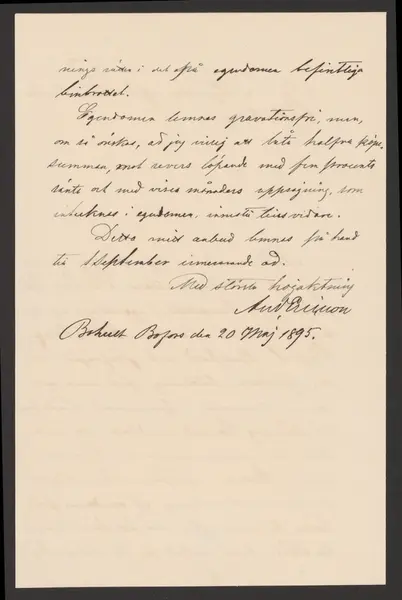 nings rätten i det på egendomen befintliga
Egendomen lemnas gravationsfri, men,
om så önskas, ad jag villig att låta halfva köpe-
summan, mot revers löpande med fem procents
ränta och med månaders uppsägning, som
intecknas i egendomen, innestå tills vidare.
Detta mitt anbud lemnas på hand
till 1 September innevarande år.
Med största högaktning
And. Ericsson
Bohult Bofors den 20 Maj 1895.